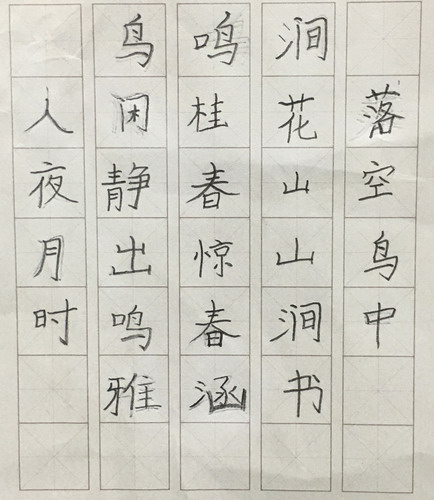 鸟鸣涧
人闲桂花落
夜静春山空
月出惊山鸟
时鸣春涧中
雅涵书